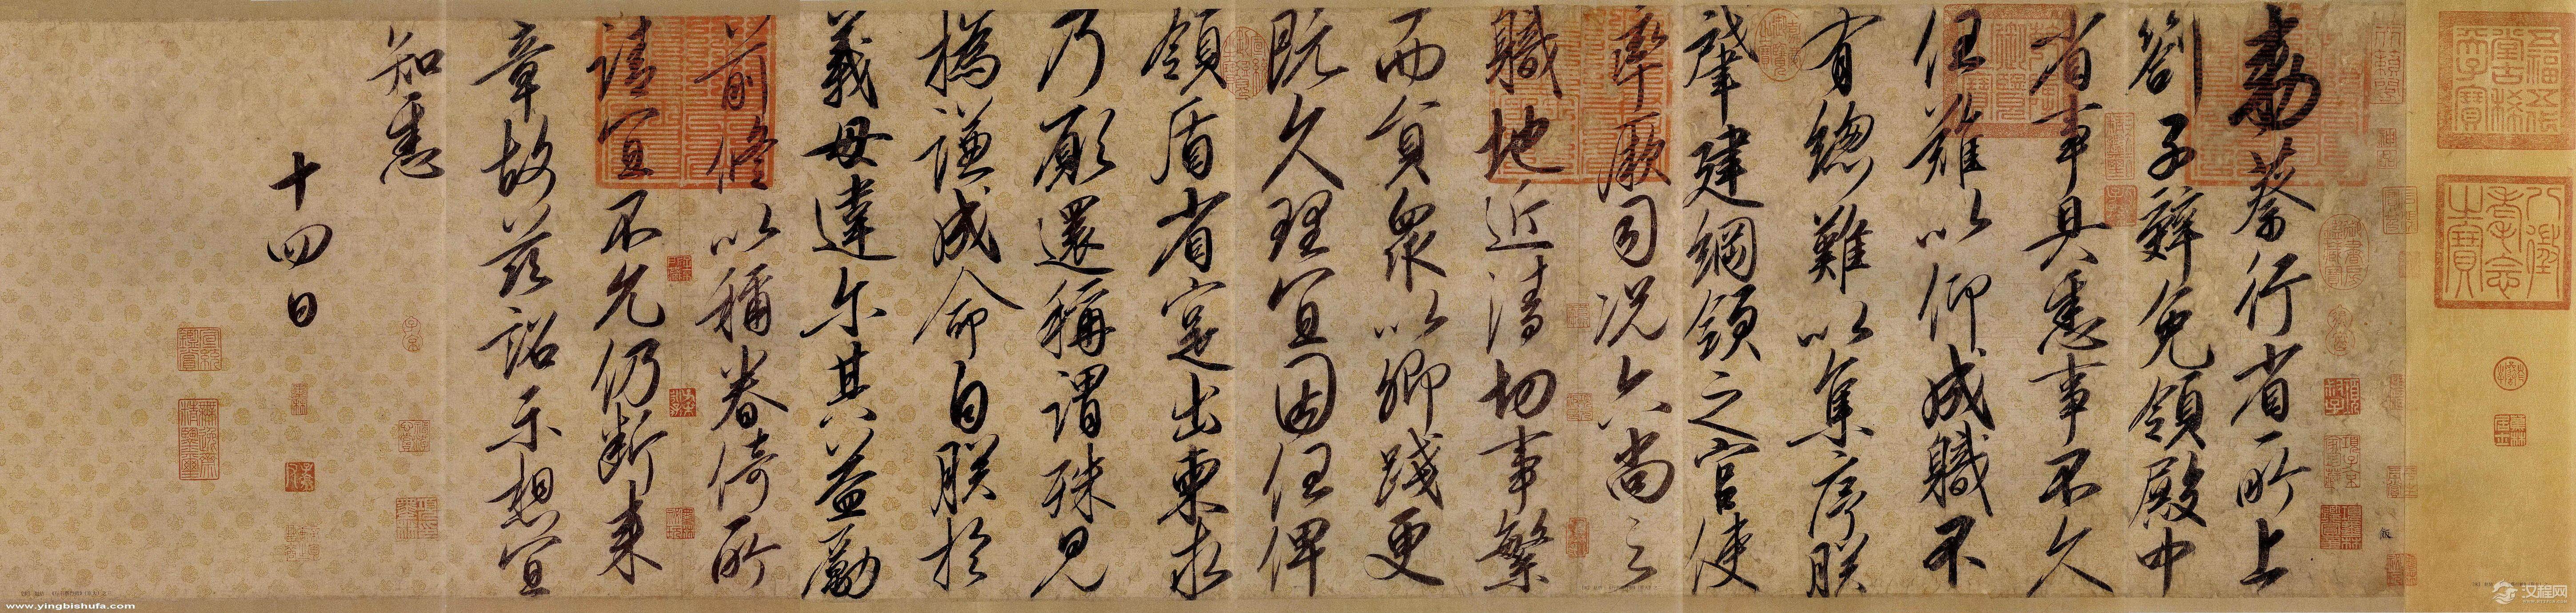 勅蔡行省所上
劄子辭免領殿中
省事具悉事不久
任難以仰成職不
有總難以集序朕
肇建綱領之官使
率厥司況六尚之
職地近清切事繁
而員衆以卿踐更
既久理宜因任俾
領盾省寔出柬求
乃願還稱謂殊見
撝謙成命自朕於
義毋違尔其益勵
前修以稱眷倚所
請宜不允仍斷來
章故茲詔示想宜
知悉
十四日
五福五代堂古稀天子寶
八徵耄念之寶
www.yingbishufa.com
汉程网